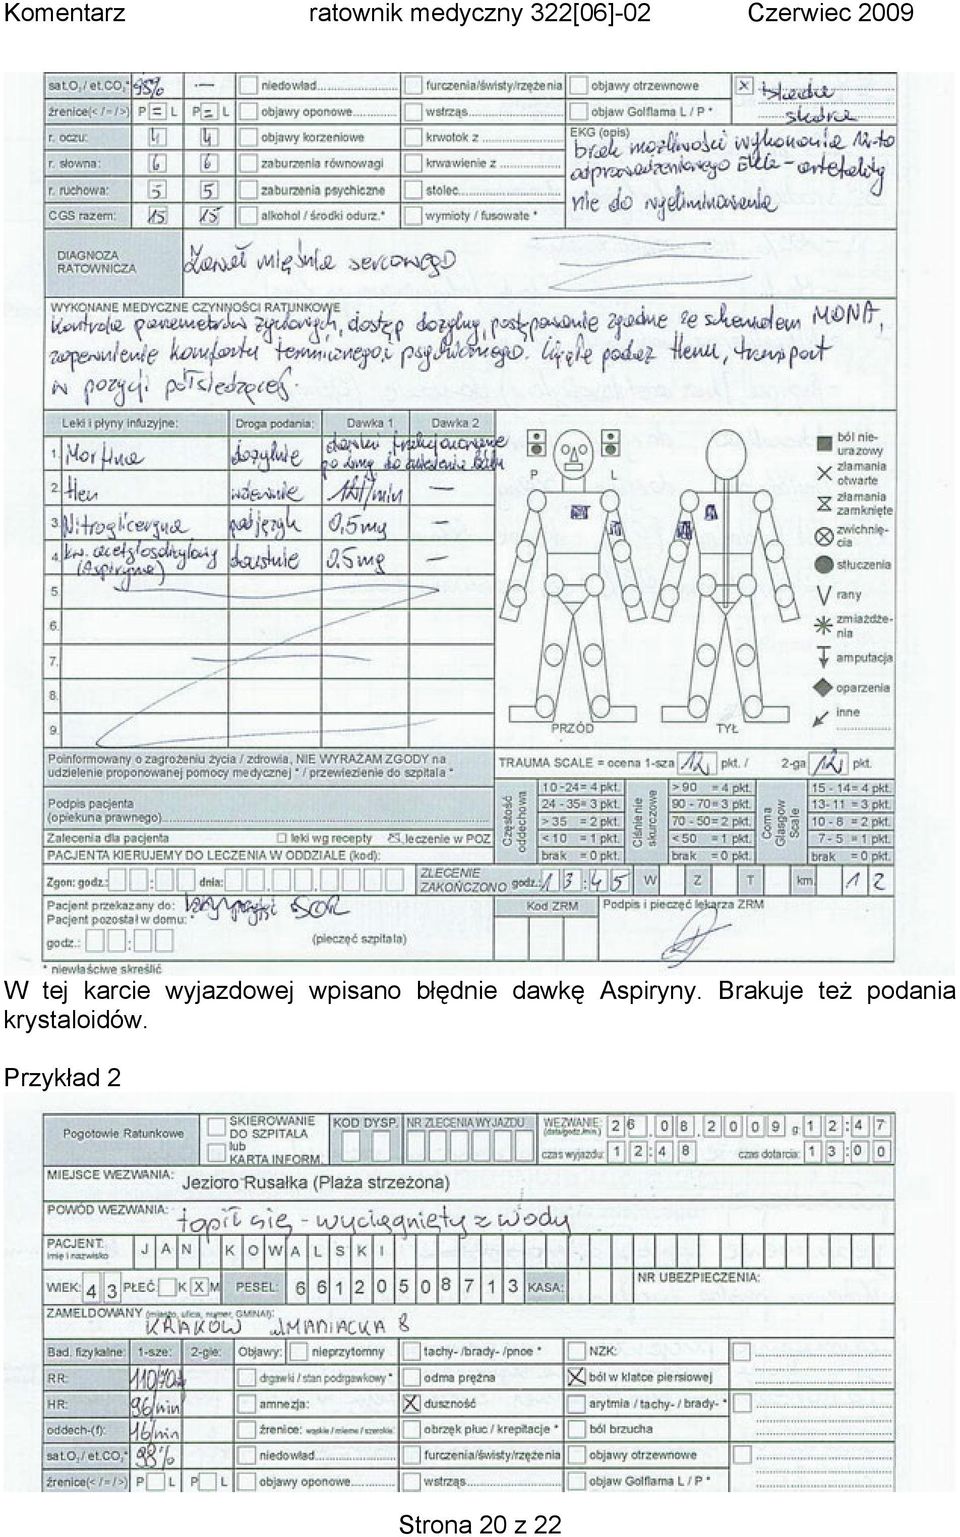 Komentarz ratownik medyczny 322[06]-02 Czerwiec 2009
sat.O₂/ et.CO₂* 95% — niedowład... furczenia/świsty/rzężenia objawy otrzewnowe x blada
źrenice(< / = / >) P = L P = L objawy oponowe... wstrząs... objaw Golflama L / P * skóra
r. oczu: 4 4 objawy korzeniowe krwotok z ... EKG (opis)
r. słowna: 6 6 zaburzenia równowagi krwawienie z ... brak możliwości wykonania 12-to
r. ruchowa: 5 5 zaburzenia psychiczne stolec... odprowadzeniowego EKG - artefakty
CGS razem: 15 15 alkohol / środki odurz.* wymioty / fusowate * nie do wyeliminowania
DIAGNOZA
RATOWNICZA Zawał mięśnia sercowego
WYKONANE MEDYCZNE CZYNNOŚCI RATUNKOWE
Kontrola parametrów życiowych, dostęp dożylny, postępowanie zgodne ze schematem MONA,
zapewnienie komfortu termicznego i psychicznego. Ciągła podaż tlenu, transport
w pozycji półsiedzącej.
Leki i płyny infuzyjne: Droga podania: Dawka 1 Dawka 2
1. Morfina dożylnie dawki frakcjonowane
po 2mg do zniesienia bólu
2. tlen wziewnie 12l/min —
3. Nitrogliceryna podjęzyk 0,5mg —
4. kw. acetylosalicylowy doustnie 0.5mg —
(Aspiryna)
5.
6.
7.
8.
9.
P L
PRZÓD TYŁ
ból nie-
urazowy
złamania
otwarte
złamania
zamknięte
zwichnię-
cia
stłuczenia
rany
zmiażdże-
nia
amputacja
oparzenia
inne
Poinformowany o zagrożeniu życia / zdrowia, NIE WYRAŻAM ZGODY na
udzielenie proponowanej pomocy medycznej * / przewiezienie do szpitala *
Podpis pacjenta
(opiekuna prawnego)...
TRAUMA SCALE = ocena 1-sza 12 pkt. / 2-ga 12 pkt.
Częstość oddechowa 10-24= 4 pkt. Ciśnienie skurczowe > 90 = 4 pkt. Coma Glasgow Scale 15 - 14= 4 pkt.
24 - 35= 3 pkt. 90 - 70= 3 pkt. 13- 11 = 3 pkt.
> 35 = 2 pkt. 70 - 50= 2 pkt. 10 - 8 = 2 pkt.
< 10 = 1 pkt. < 50 = 1 pkt. 7 - 5 = 1 pkt.
brak = 0 pkt. brak = 0 pkt. brak = 0 pkt.
Zalecenia dla pacjenta leki wg recepty leczenie w POZ
PACJENTA KIERUJEMY DO LECZENIA W ODDZIALE (kod):
Zgon: godz.: : dnia: . .
ZLECENIE
ZAKOŃCZONO godz.: 13:45 W Z T km. 12
Pacjent przekazany do: SOR
Pacjent pozostał w domu: *
godz.: : (pieczęć szpitala)
Kod ZRM Podpis i pieczęć lekarza ZRM
* niewłaściwe skreślić
W tej karcie wyjazdowej wpisano błędnie dawkę Aspiryny. Brakuje też podania
krystaloidów.
Przykład 2
Pogotowie Ratunkowe
SKIEROWANIE
DO SZPITALA
lub
KARTA INFORM.
KOD DYSP. NR ZLECENIA WYJAZDU
WEZWANIE: (data/godz./min.) 26.08.2009 g. 12:47
czas wyjazdu: 12:48 czas dotarcia: 13:00
MIEJSCE WEZWANIA: Jezioro Rusałka (Plaża strzeżona)
POWÓD WEZWANIA: topił się - wyciągnięty z wody
PACJENT: imię i nazwisko JAN KOWALSKI
WIEK: 43 PŁEĆ: K X M PESEL: 66120508713 KASA: NR UBEZPIECZENIA:
ZAMELDOWANY (miasto, ulica, numer, GMINA!):
KRAKÓW UMANIACKA 8
Bad. fizykalne: 1-sze: 2-gie: Objawy: nieprzytomny tachy- /brady- /pnoe * NZK:
RR: 110/70 drgawki / stan podrgawkowy * odma prężna X ból w klatce piersiowej
HR: 96/min amnezja: X duszność arytmia / tachy- / brady- *
oddech-(f): 16/min źrenice: wąskie / mierne / szerokie: obrzęk płuc / krepitacje * ból brzucha
sat.O₂/ et.CO₂* 98% niedowład... furczenia/świsty/rzężenia objawy otrzewnowe
źrenice(< / = / >) P L P L objawy oponowe... wstrząs... objaw Golflama L / P *
Strona 20 z 22